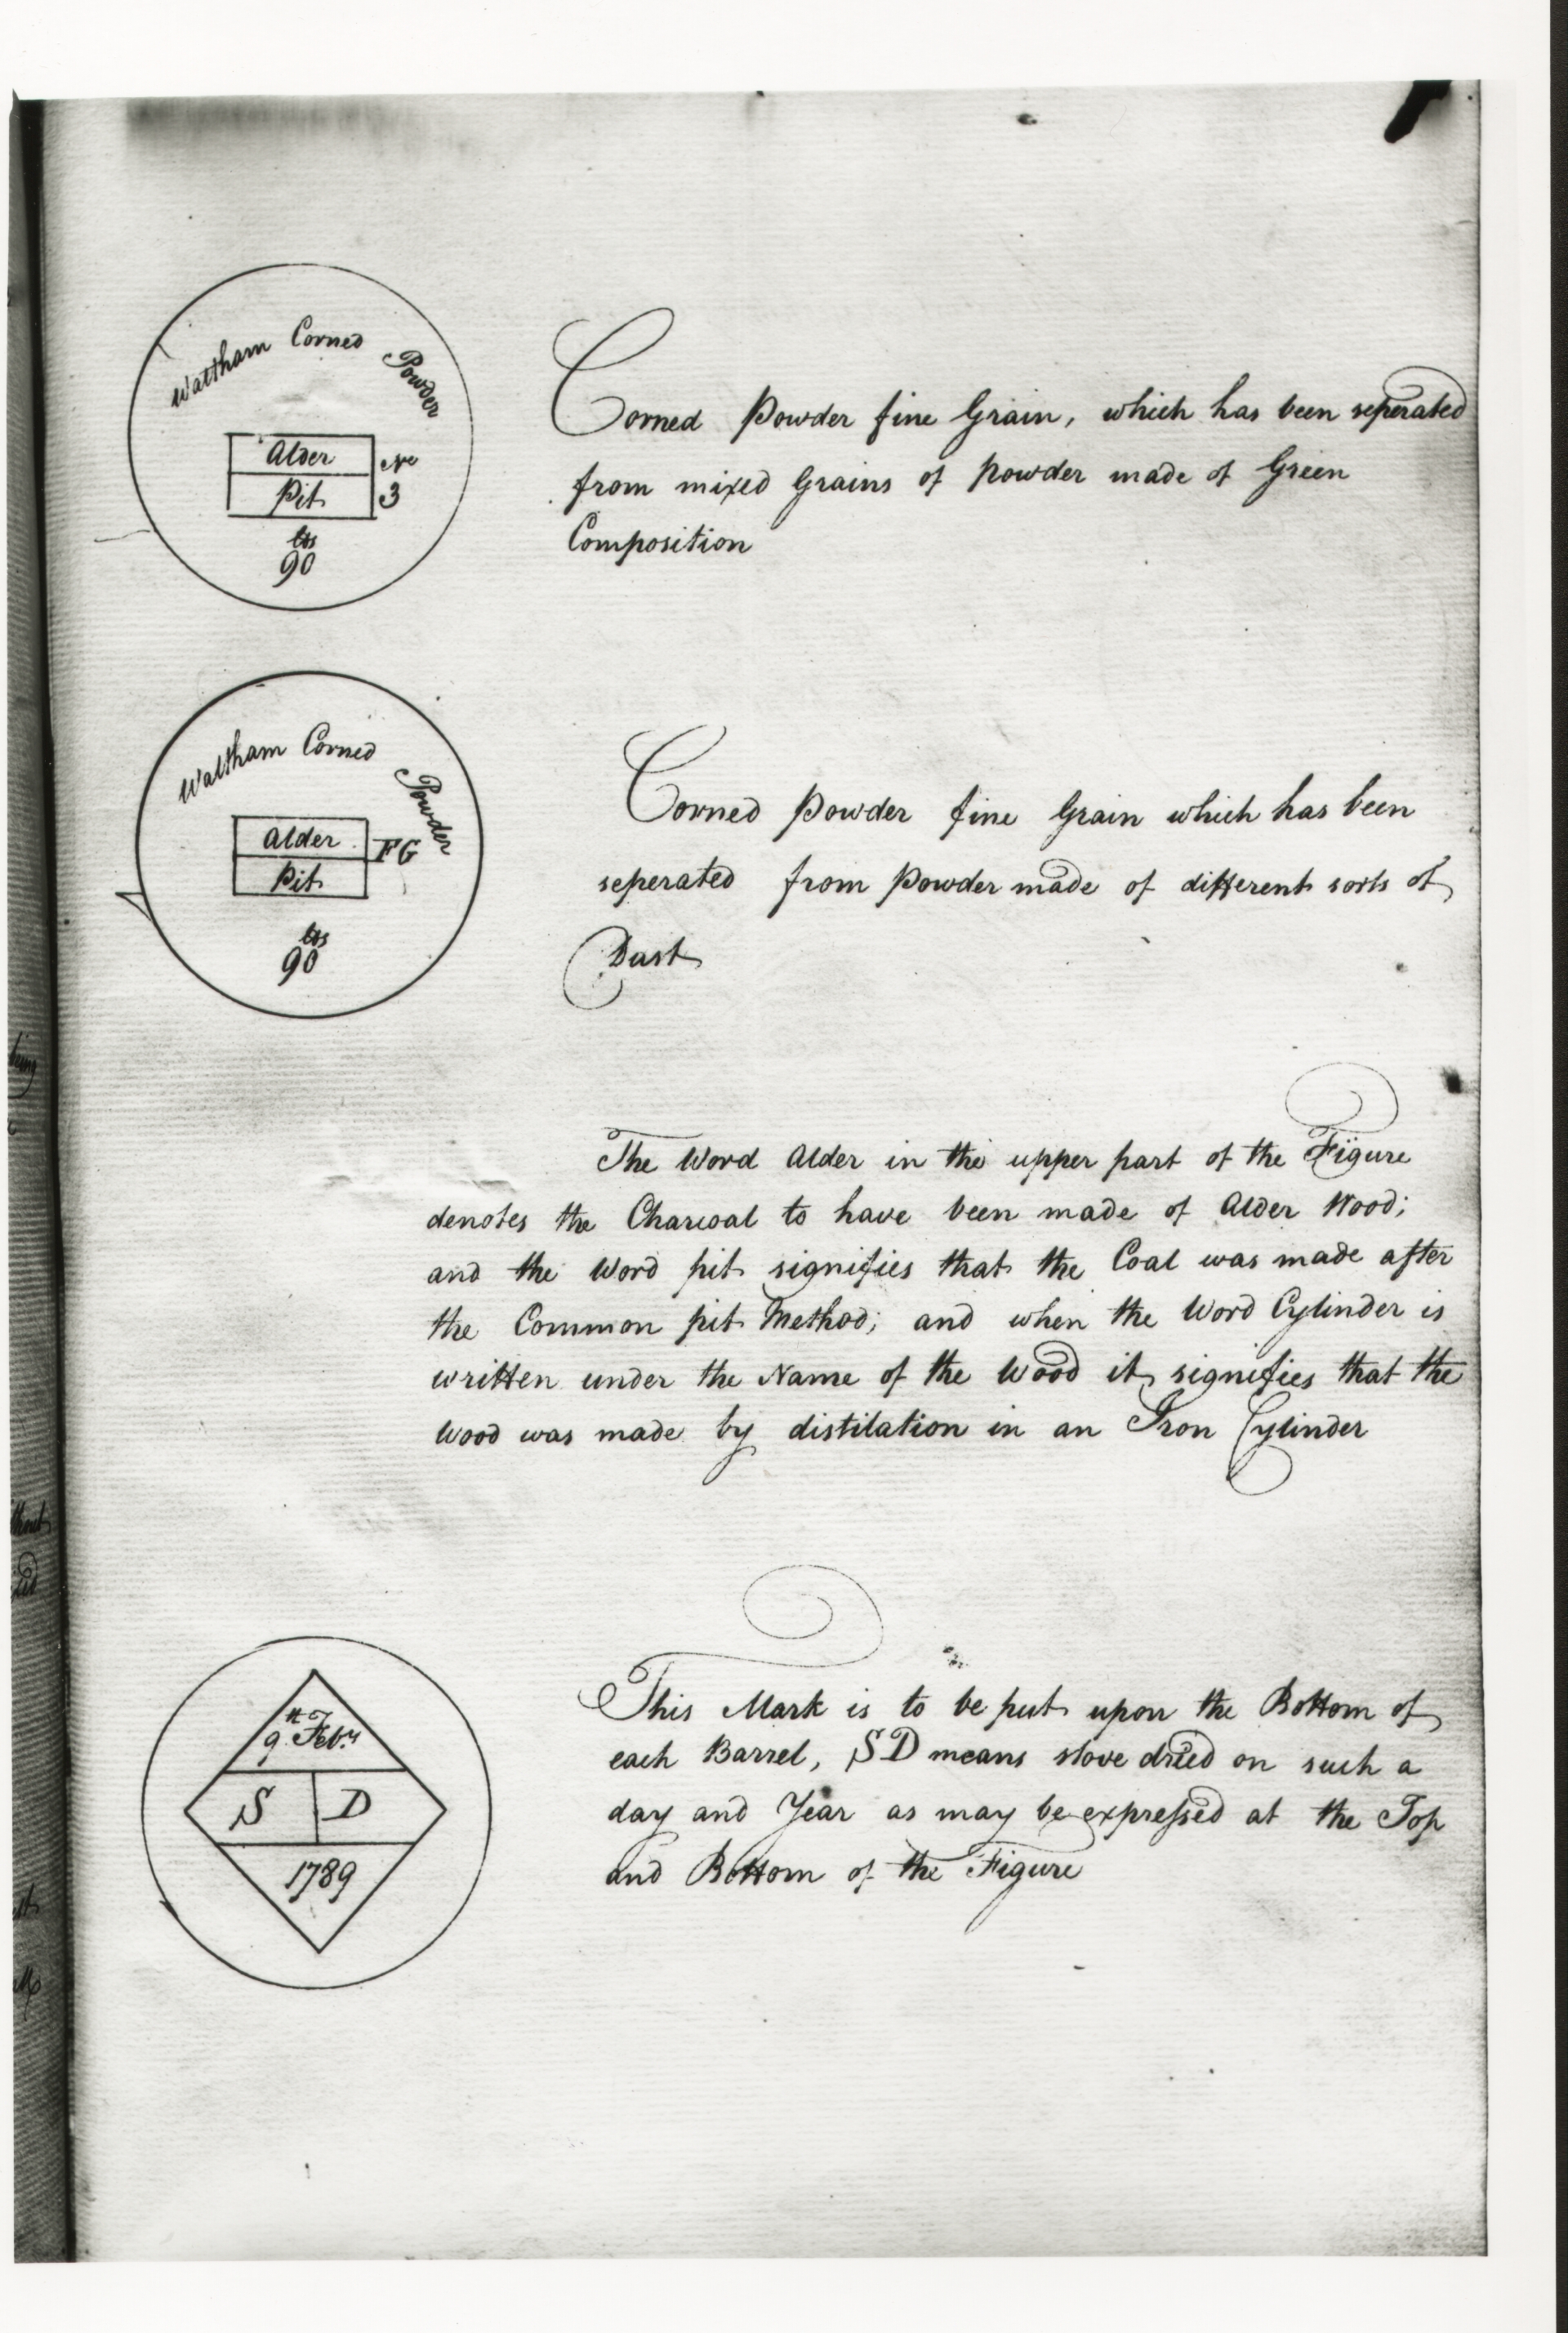 Waltham Corned Powder
Alder No
Pit 3
lbs
90
Corned Powder fine Grain, which has been seperated
from mixed Grains of powder made of Green
Composition
Waltham Corned Powder
Alder FG
Pit
lbs
90
Corned Powder fine Grain which has been
seperated from Powder made of different sorts of
Dust
The Word Alder in the upper part of the Figure
denotes the Charcoal to have been made of Alder Wood;
and the Word pit signifies that the Coal was made after
the Common pit Method; and when the Word Cylinder is
written under the Name of the Wood it signifies that the
Wood was made by distilation in an Iron Cylinder
9th Febry
S D
1789
This Mark is to be put upon the Bottom of
each Barrel, SD means stove dried on such a
day and Year as may be expressed at the Top
and Bottom of the Figure